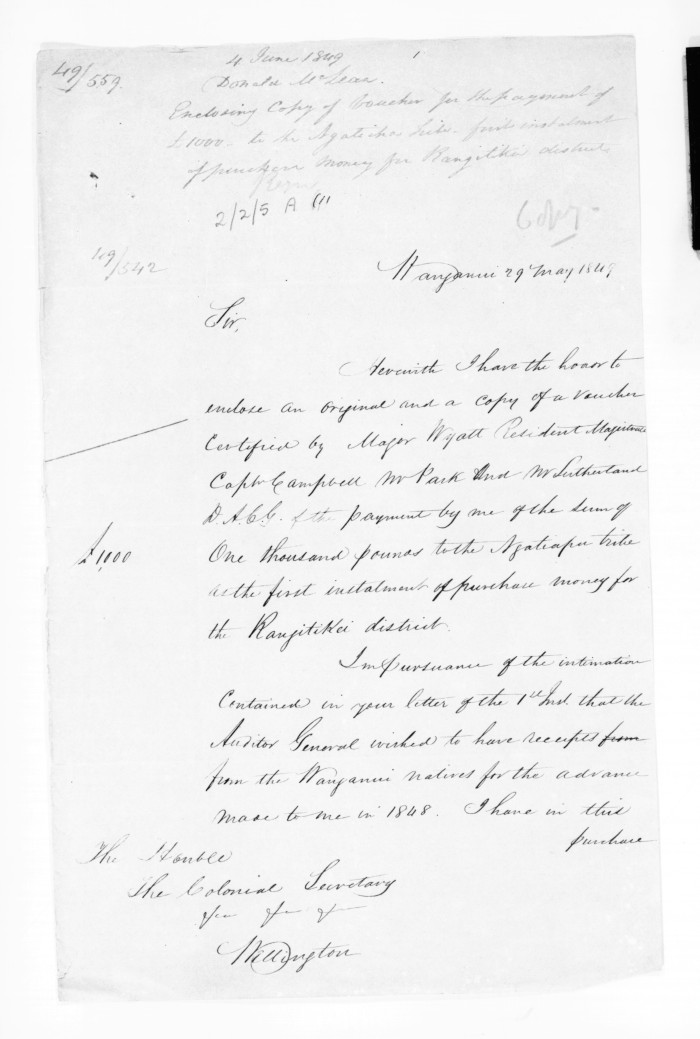 49/559.
4 June 1849
Donald McLean.
Enclosing Copy of Voucher for the payment of
£1000. to the Ngatiapa tribe first instalment
of purchase money for Rangitikei district
2/2/5 A
Copy.
49/542
Wanganui 29 May 1849
Sir,
Herewith I have the honor to
enclose an original and a copy of a voucher
Certified by Major Wyatt Resident Magistrate
Captn Campbell Mr Park And Mr Sutherland
D.A.C.G. of the payment by me of the sum of
£1,000
One thousand pounds to the Ngatiapa tribe
as the first instalment of purchase money for
the Rangitikei district.
In pursuance of the intimation
Contained in your letter of the 1st Inst. that the
Auditor General wished to have receipts from
from the Wanganui natives for the advance
made to me in 1848. I have in this
purchase
The Honble
The Colonial Secretary
Wellington